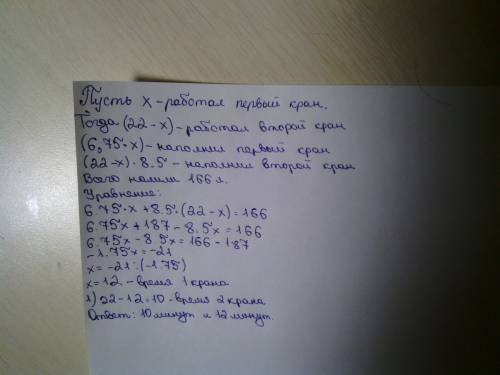 Пусть x - работал первый кран.
Тогда (22 - x) - работал второй кран
(6,75·x) - наполнил первый кран
(22-x)·8.5 - наполнил второй кран
Всего налили 166 л.
Уравнение:
6.75·x + 8.5·(22 - x) = 166
6.75x + 187 - 8.5x = 166
6.75x - 8.5x = 166 - 187
-1.75x = -21
x = -21:(-1.75)
x = 12 - время 1 крана
1) 22-12=10 - время 2 крана.
Ответ: 10 минут и 12 минут.